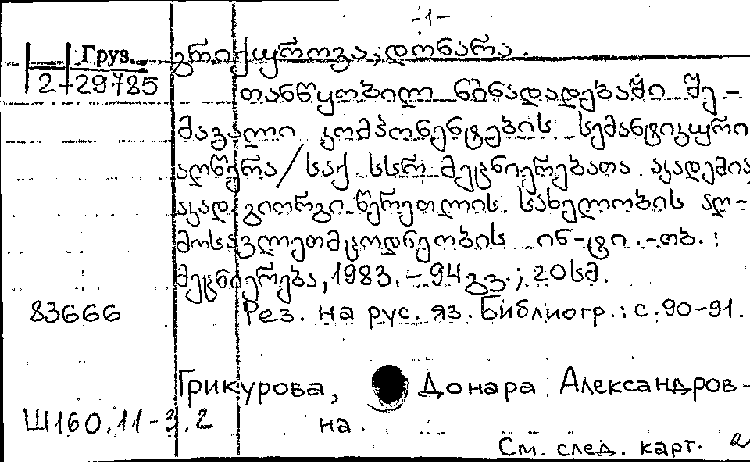 -1-
Груз.
2-29785
გრიკუროვა, დონარა.
თანწყობილ წინადადებაში შე-
მავალი კომპონენტების სემანტიკური
აღწერა / საქ. სსრ მეცნიერებათა აკადემია
აკად. გიორგი წერეთლის სახელობის აღ-
მოსავლეთმცოდნეობის ინ-ტი. -თბ. :
მეცნიერება, 1983. - 94 გვ. ; 20 სმ.
83666
Рез. на рус. яз. Библиогр.: с. 90-91.
Грикурова, Донара Александров-
на.
Ш160.11-3.2
См. след. карт.